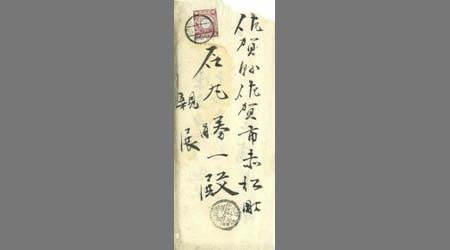 佐賀縣佐賀市赤松町
石丸勝一殿
親展